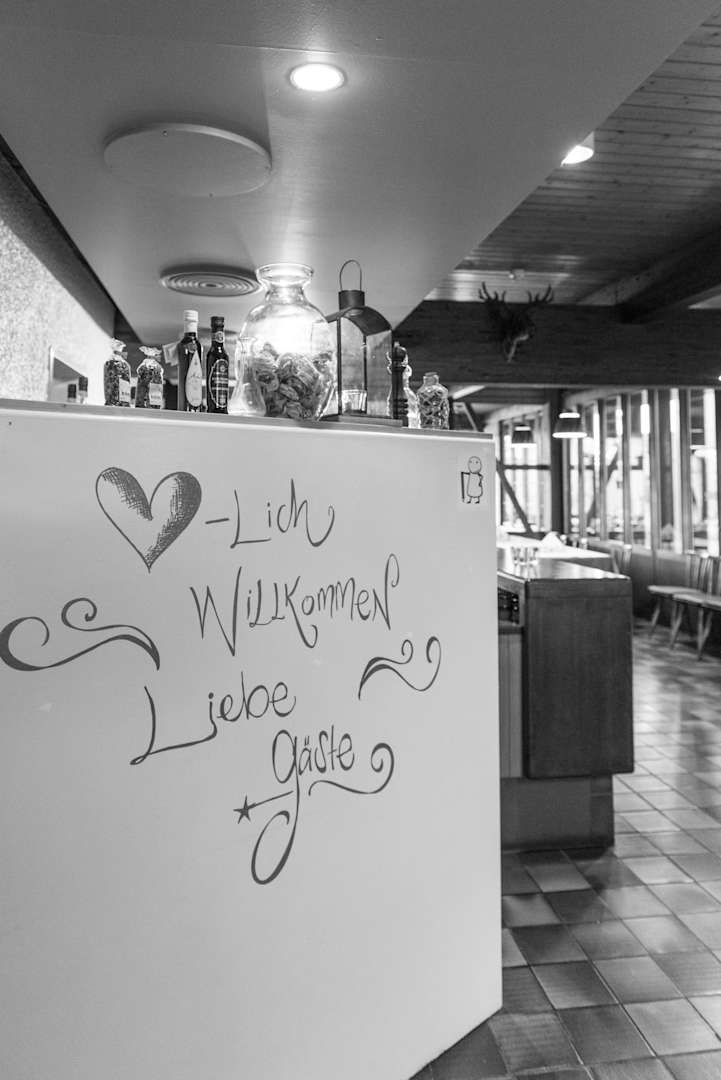 -Lich
Willkommen
Liebe
gäste